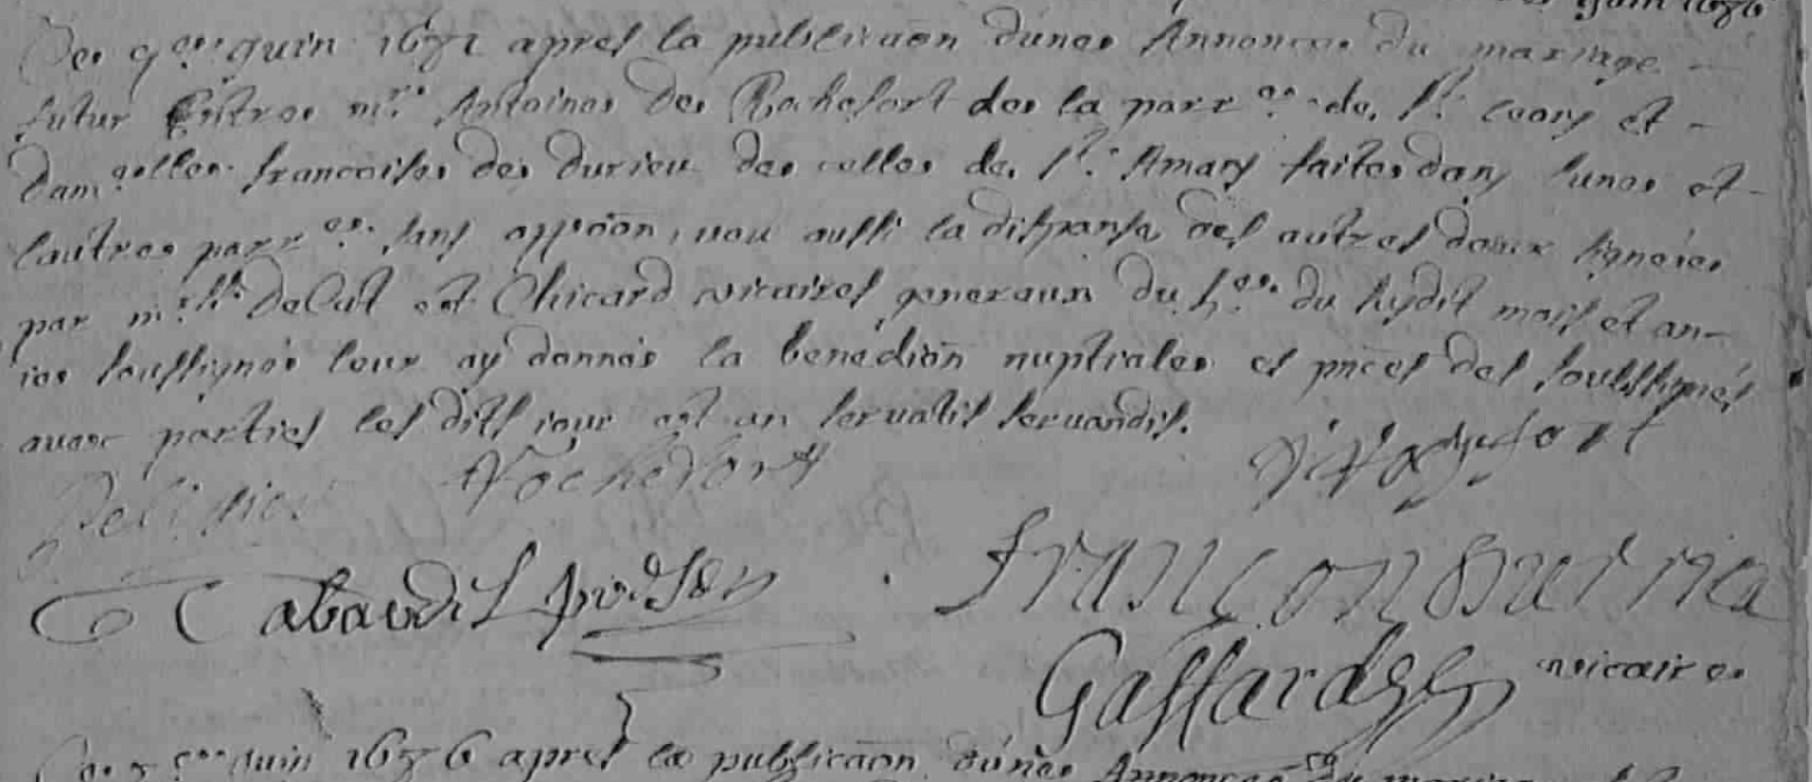 juin 1676
De 9.e juin 1676 apres la publicaōn dune Annonce du mariage
futur Entre m.re Antoine de Rochefort de la parr.e de s.t Ceory et
dam.elle francoise de durieu de celles de s.t Amans faites dans lune et
lautre parr.e sans oppōon, veu aussi la dispanse des autres deux signées
par m.rs Delat et Chicard vicaires generaux du du susdit mois et an
ie soussigné leur ay donné la benediōn nuptiale es pn̄ces des soubsignés
avec parties les dits iour et an servatis servandis.
Rochefort Rochefort
Pelissier
Cabaudil françon
Gaffard vicaire
juin 1676 apres la publicaōn dune Annonce du